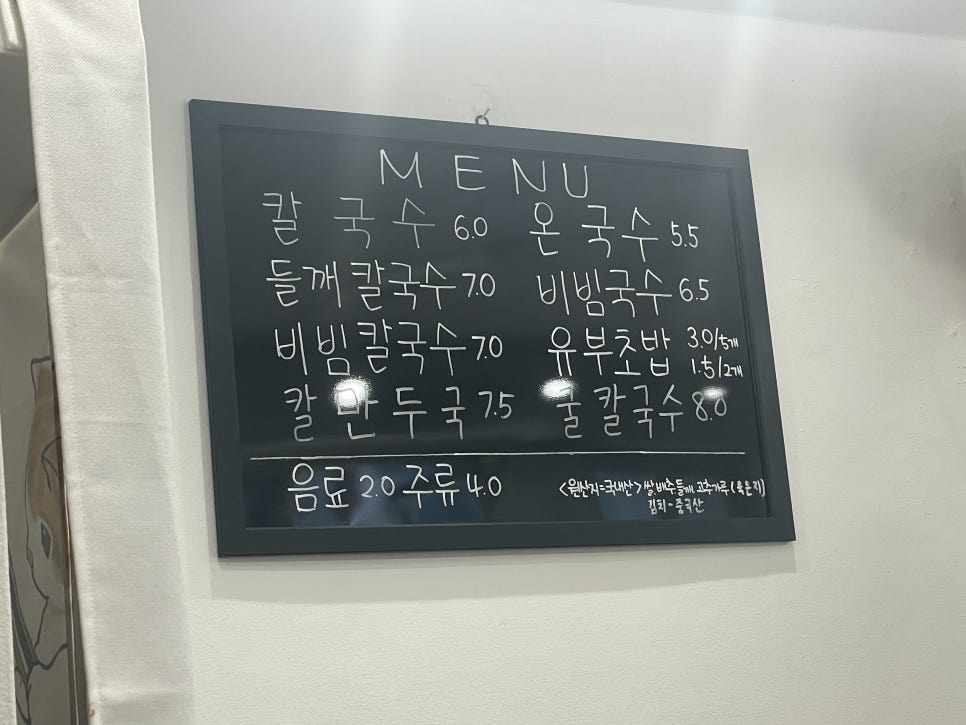 MENU
칼국수 6.0 온국수 5.5
들깨칼국수 7.0 비빔국수 6.5
비빔칼국수 7.0 유부초밥 3.0/5개
1.5/2개
칼만두국 7.5 굴칼국수 8.0
음료 2.0 주류 4.0 <원산지=국내산> 쌀,배추,들깨,고추가루(묵은지)
김치-중국산